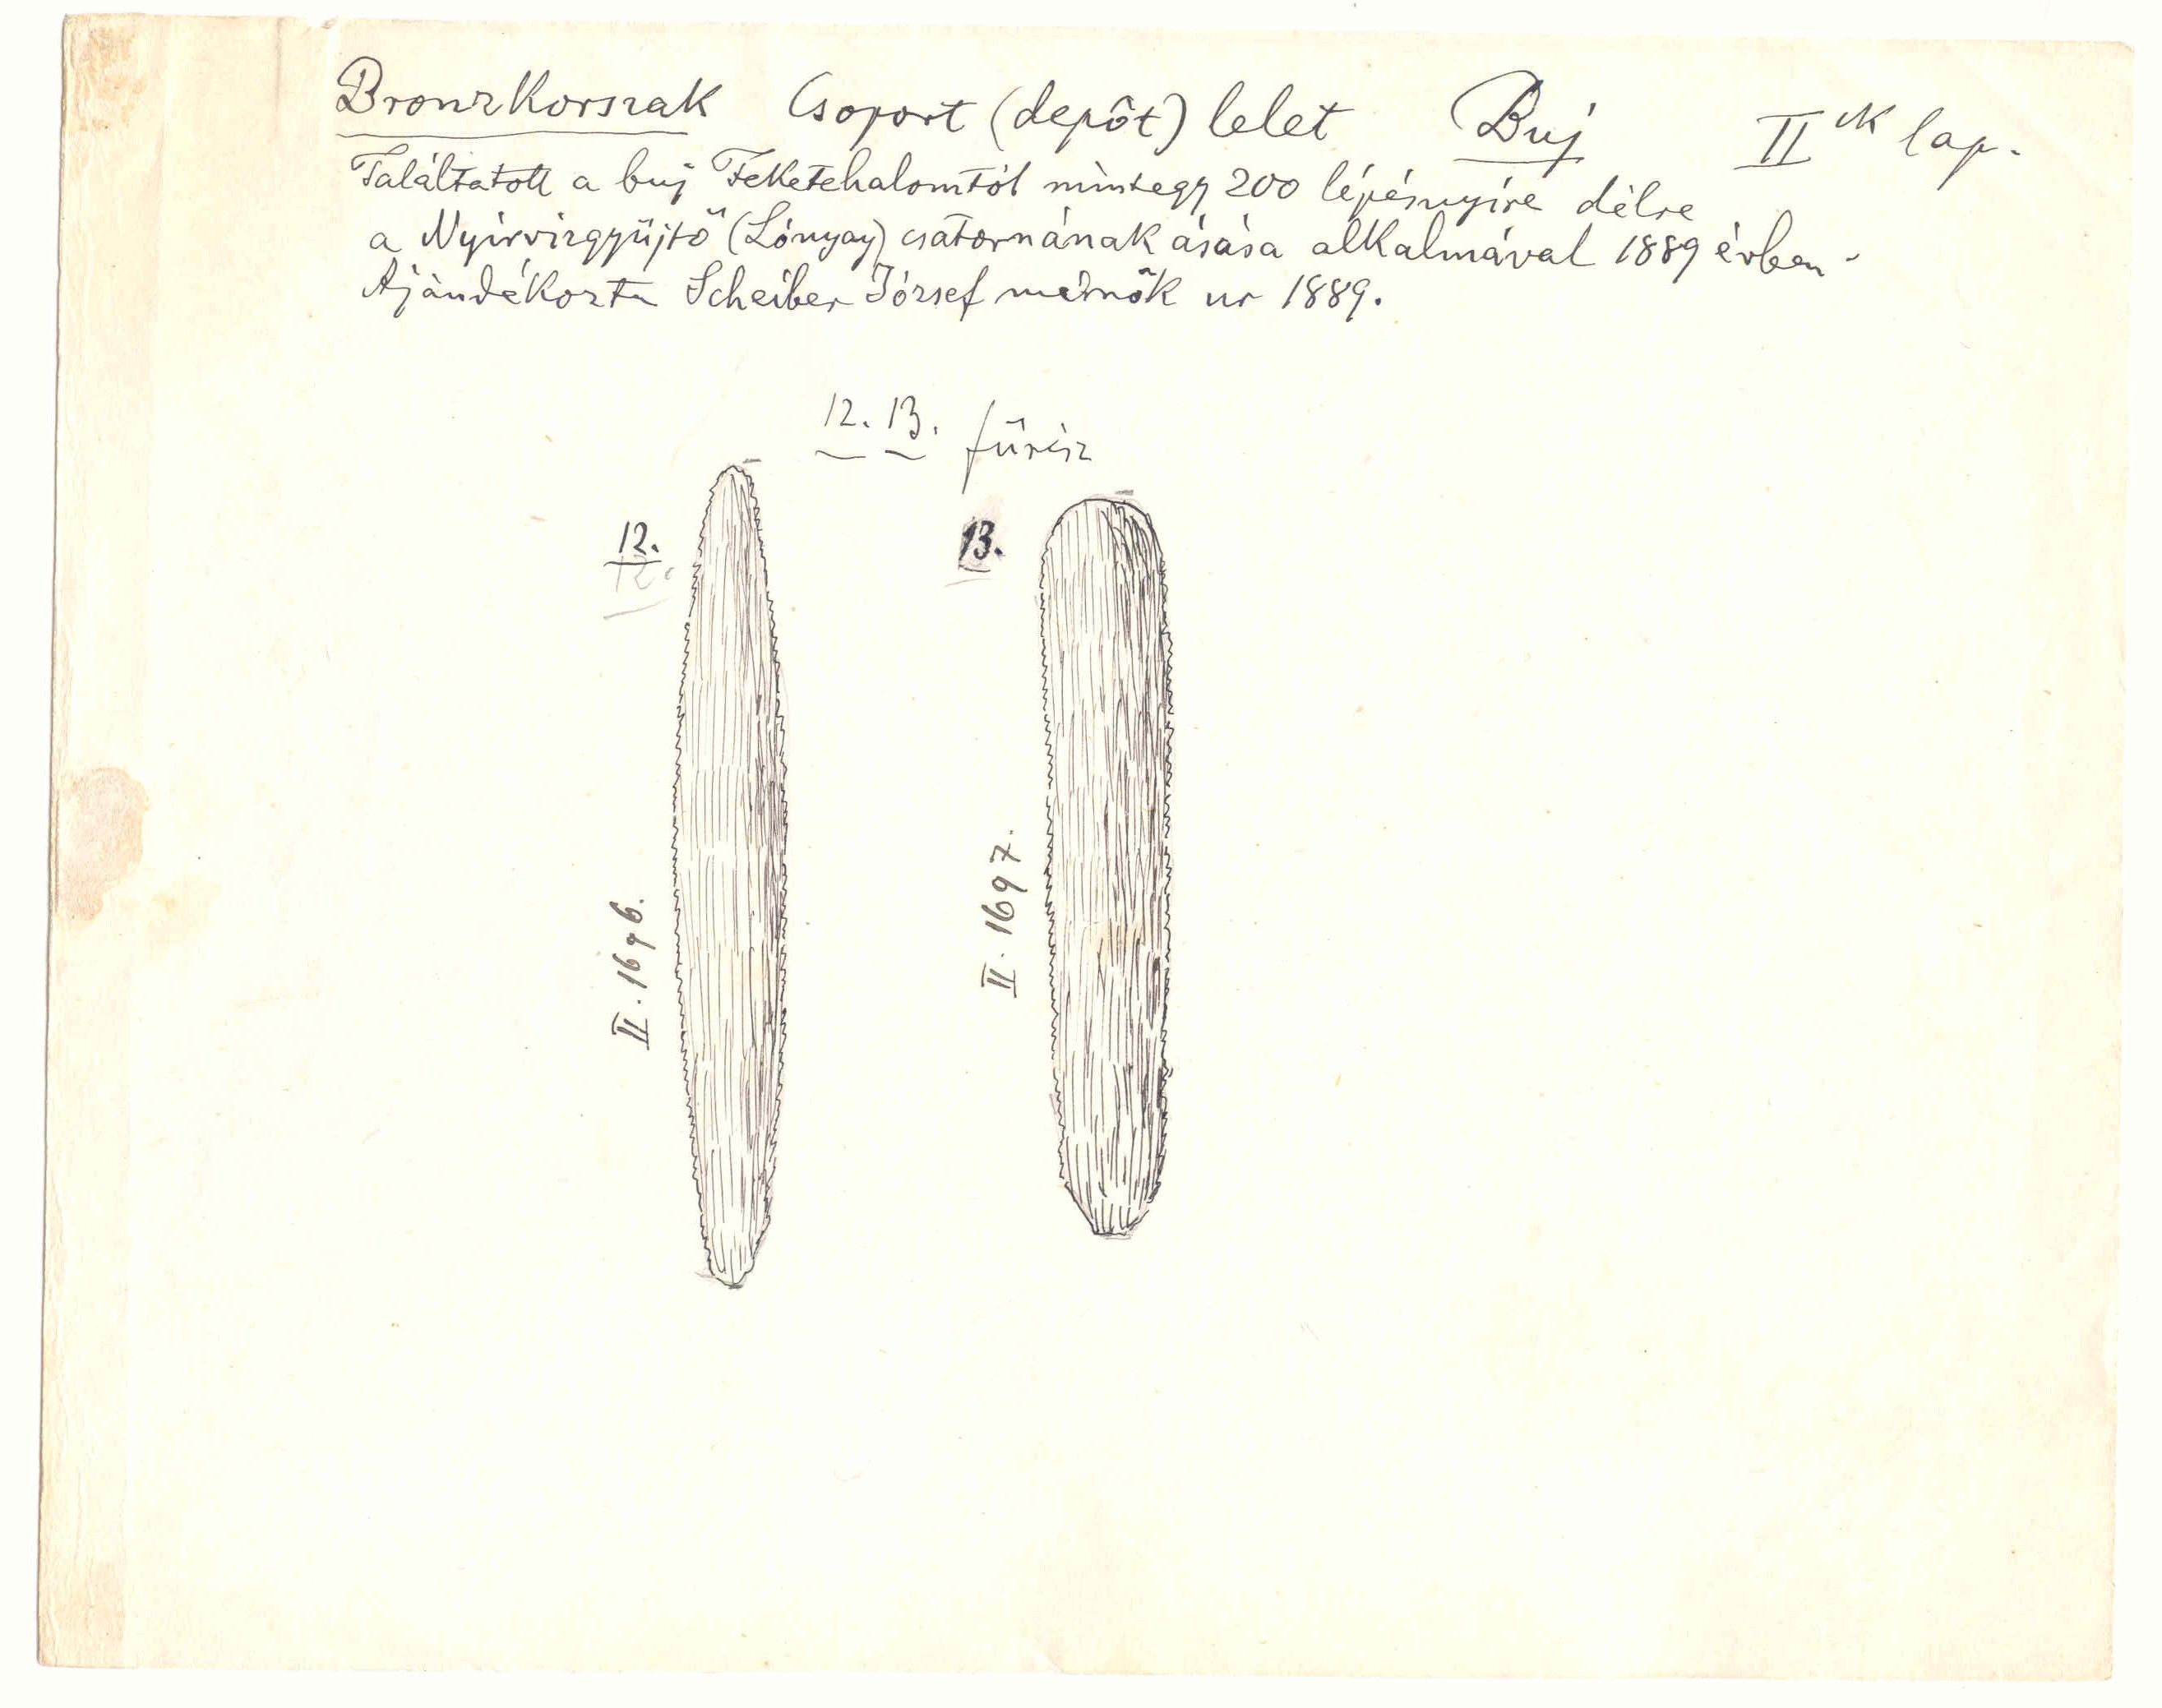 Bronzkorszak Csoport (depôt) lelet Buj IIik lap.
Találtatott a buj Feketehalomtól mintegy 200 lépésnyire délre
a Nyírvizgyűjtő (Lónyay) csatornának ásása alkalmával 1889 évben.
Ajándékozta Scheiber József mérnök ur 1889.
12. 13. fűrész
12.
12.
13.
II. 1696.
II. 1697.